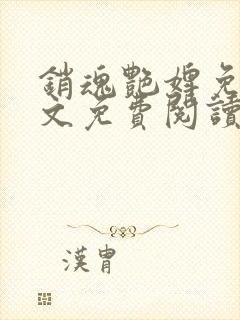 銷魂艷婢免
文免費閱讀
漢胄